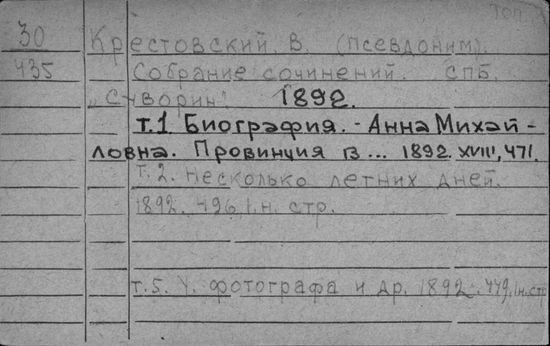 топ
30 Крестовский, В. (псевдоним).
435 Собрание сочинений. СПБ,
„Суворин". 1892.
т.1 Биография. - Анна Михай-
ловна. Провинция в ... 1892. XVIII, 471.
т. 2. Несколько летних дней.
1892. 496, 1.н. стр.
т. 5. У. фотографа и др. 1892. 449, 1н. стр